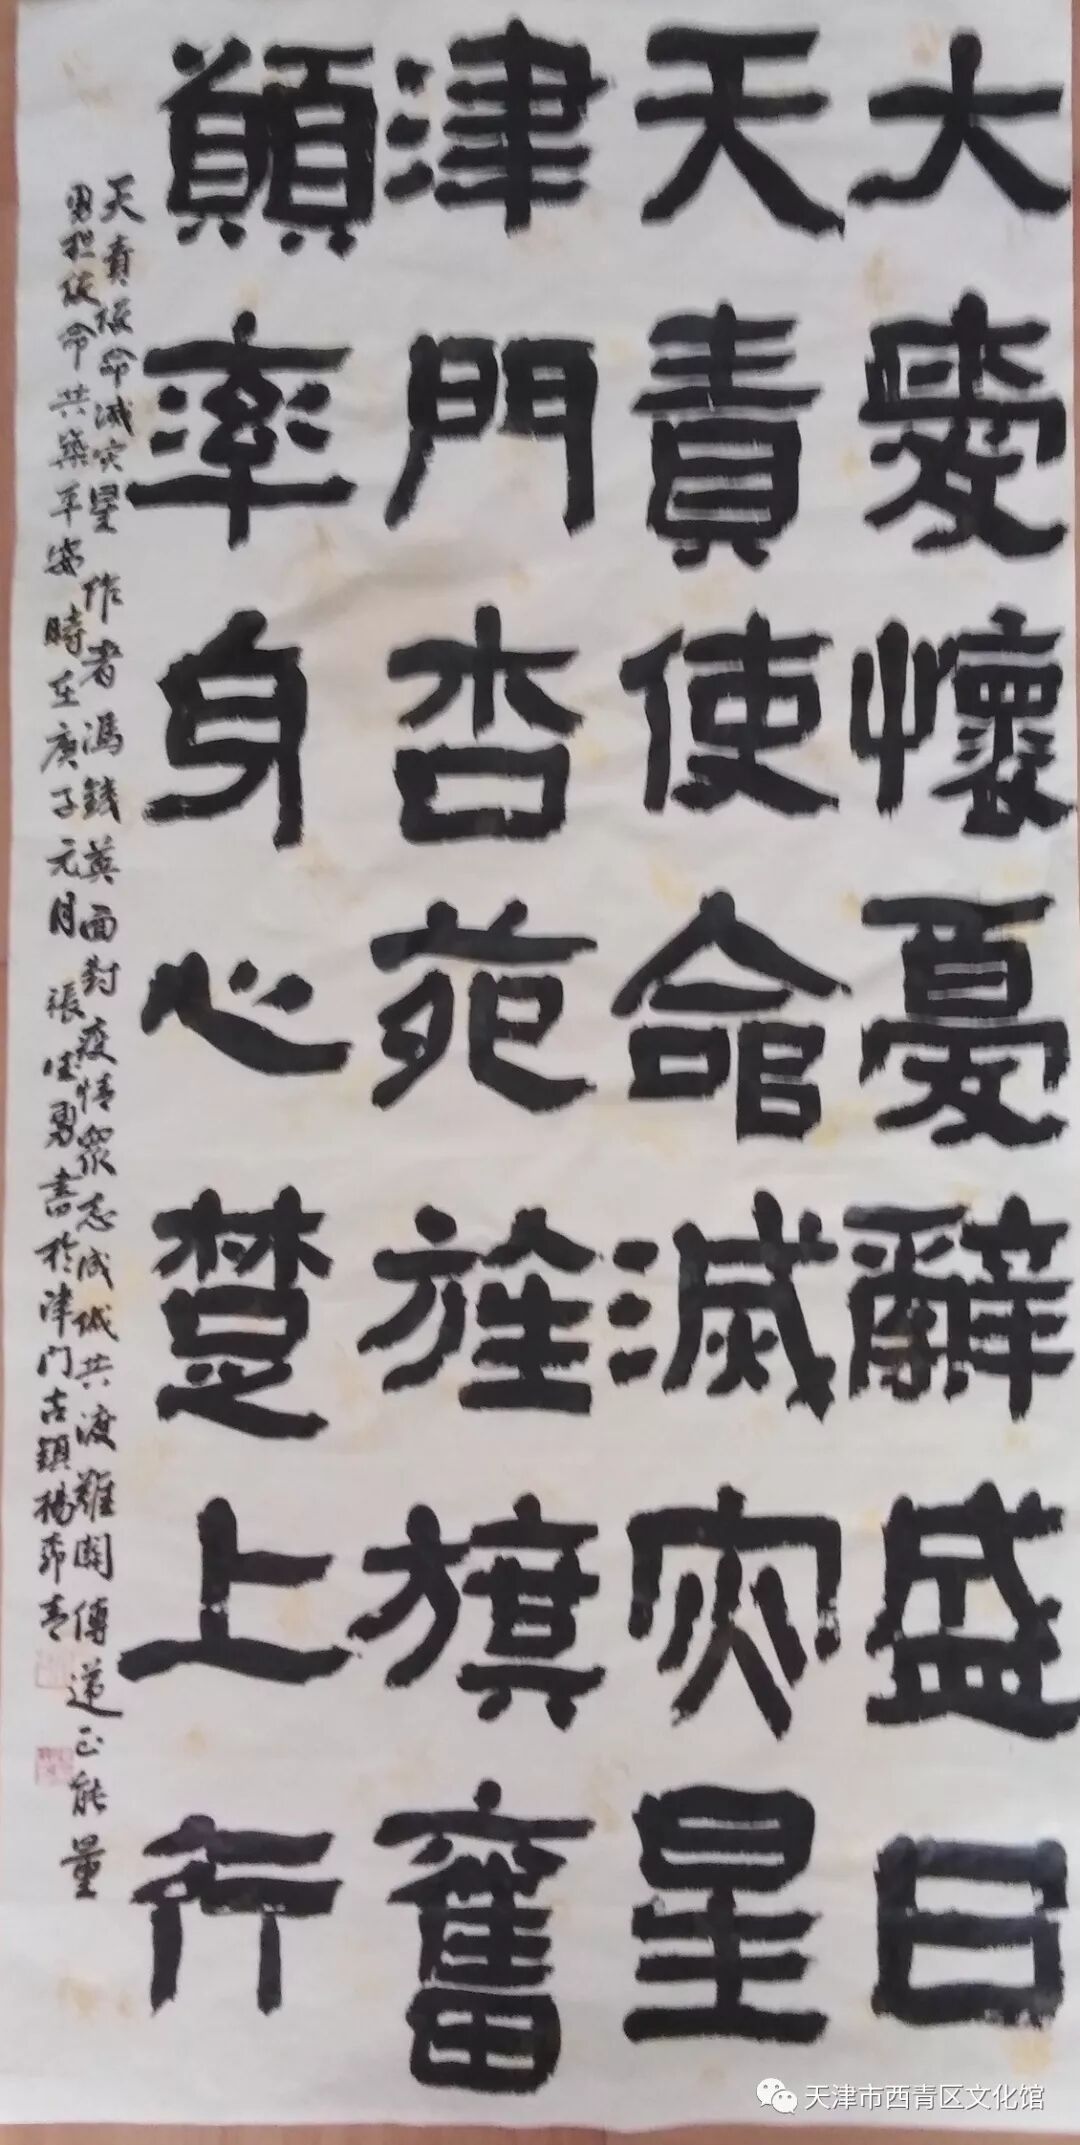 大愛懷憂辭盛日
天責使命滅灾星
津門杏苑旌旗奮
顛率身心楚上行
天責使命滅灾星 作者馮錢英面對疫情眾志成城共渡難關傳遞正能量
勇担使命共築平安時在庚子元月 張 勇書於津门古鎮楊
天津市西青区文化馆